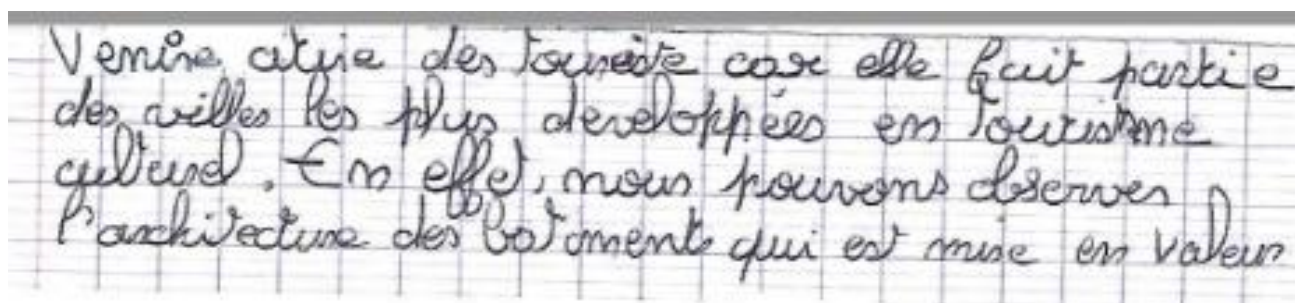 Venise atire des touriste car elle fait partie
des villes les plus developpées en tourisme
culturel. En effet, nous pouvons observer
l'architecture des batiments qui est mise en valeur